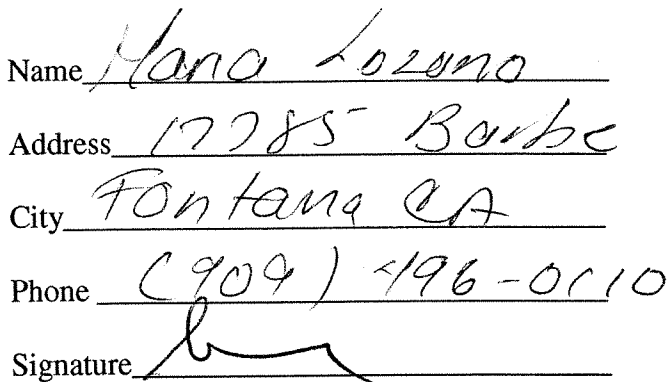 Name Maria Lozano
Address 17785 Barbe
City Fontana CA
Phone (909) 496-0110
Signature